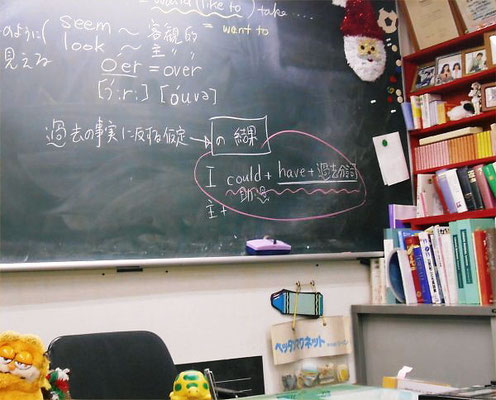 would like to) take ....
のように{ seem ~ 客観的 = want to
見える look ~ 主 〃 〃
o'er = over
[ɔ́ːr:] [óuvə]
過去の事実に反する仮定 → の結果
I could + have + 過去分詞
助 過
主 +
ペッタマグネット